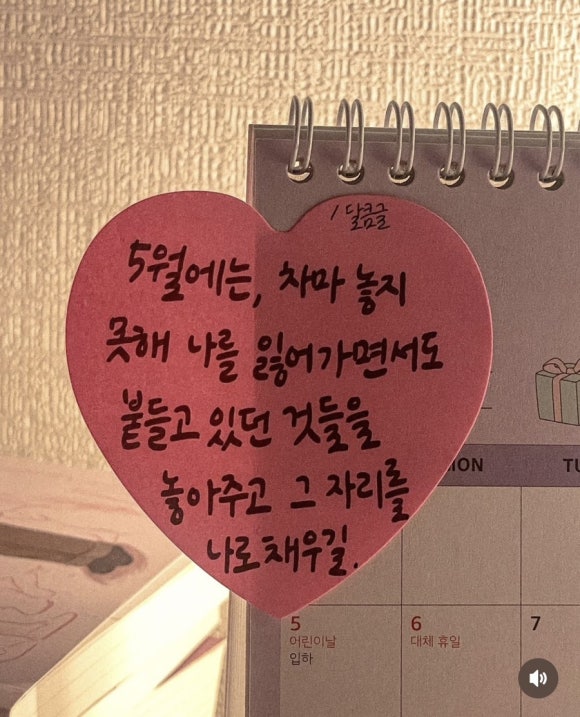 / 달콤글
5월에는, 차마 놓지
못해 나를 잃어가면서도
붙들고 있던 것들을
놓아주고 그 자리를
나로 채우길.
MON TU
5 6 7
어린이날 대체 휴일
입하